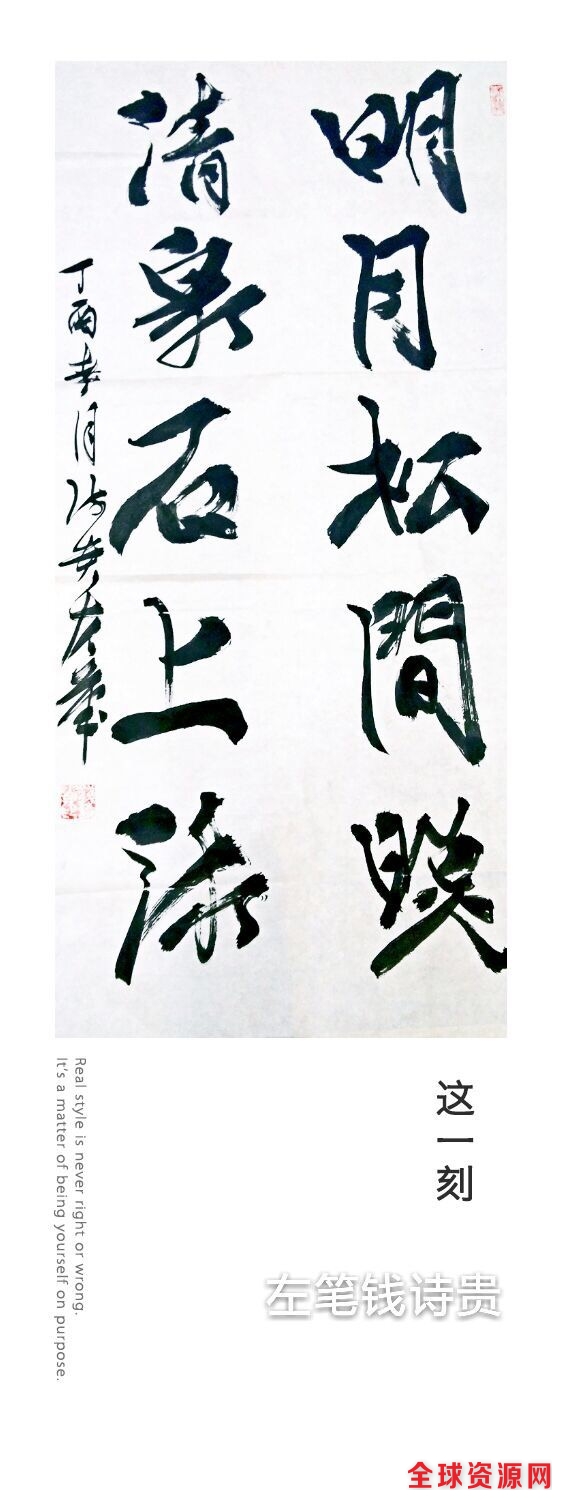 明月松間照
清泉石上流
丁酉春月诗贵左筆
这一刻
左笔钱诗贵
Real style is never right or wrong.
It's a matter of being yourself on purpose.
全球资源网